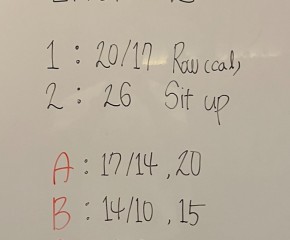 1 : 20/17 Row (cal)
2 : 26 Sit up
A : 17/14 , 20
B : 14/10 , 15